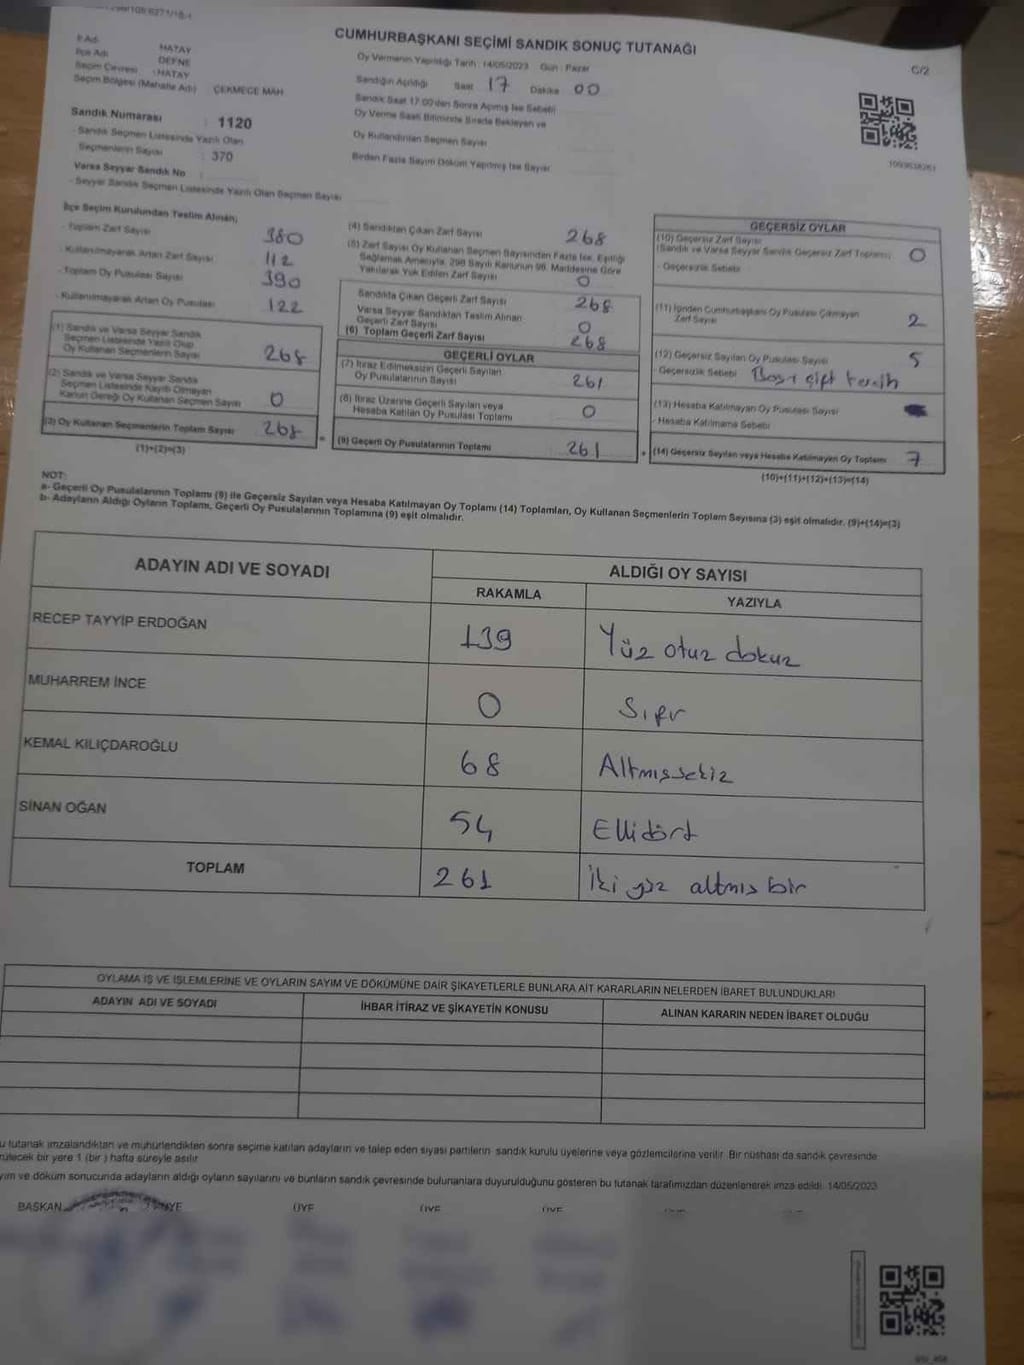 CUMHURBAŞKANI SEÇİMİ SANDIK SONUÇ TUTANAĞI
C/2
İl Adı HATAY
İlçe Adı DEFNE
Seçim Çevresi : HATAY
Seçim Bölgesi (Mahalle Adı) ÇEKMECE MAH
Oy Vermenin Yapıldığı Tarih : 14/05/2023 Gün : Pazar
Sandığın Açıldığı Saat 17 Dakika 00
Sandık Saat 17:00'den Sonra Açılmış İse Sebebi
Oy Verme Saati Bitiminde Sırada Bekleyen ve
Oy Kullandırılan Seçmen Sayısı
Birden Fazla Sayım Döküm Yapılmış İse Sayısı
1093638261
Sandık Numarası : 1120
- Sandık Seçmen Listesinde Yazılı Olan
Seçmenlerin Sayısı : 370
Varsa Seyyar Sandık No :
- Seyyar Sandık Seçmen Listesinde Yazılı Olan Seçmen Sayısı
İlçe Seçim Kurulundan Teslim Alınan;
- Toplam Zarf Sayısı 380
- Kullanılmayarak Artan Zarf Sayısı 112
- Toplam Oy Pusulası Sayısı 390
- Kullanılmayarak Artan Oy Pusulası 122
(1) Sandık ve Varsa Seyyar Sandık
Seçmen Listesinde Yazılı Olup
Oy Kullanan Seçmenlerin Sayısı 268
(2) Sandık ve Varsa Seyyar Sandık
Seçmen Listesinde Kayıtlı Olmayan
Kanun Gereği Oy Kullanan Seçmen Sayısı 0
(3) Oy Kullanan Seçmenlerin Toplam Sayısı 268
(1)+(2)=(3)
(4) Sandıktan Çıkan Zarf Sayısı 268
(5) Zarf Sayısı Oy Kullanan Seçmen Sayısından Fazla İse, Eşitliği
Sağlamak Amacıyla, 298 Sayılı Kanunun 98. Maddesine Göre
Yakılarak Yok Edilen Zarf Sayısı 0
Sandıkta Çıkan Geçerli Zarf Sayısı 268
Varsa Seyyar Sandıktan Teslim Alınan
Geçerli Zarf Sayısı 0
(6) Toplam Geçerli Zarf Sayısı 268
GEÇERLİ OYLAR
(7) İtiraz Edilmeksizin Geçerli Sayılan
Oy Pusulalarının Sayısı 261
(8) İtiraz Üzerine Geçerli Sayılan veya
Hesaba Katılan Oy Pusulası Toplamı 0
(9) Geçerli Oy Pusulalarının Toplamı 261
GEÇERSİZ OYLAR
(10) Geçersiz Zarf Sayısı
(Sandık ve Varsa Seyyar Sandık Geçersiz Zarf Toplamı) 0
- Geçersizlik Sebebi
(11) İçinden Cumhurbaşkanı Oy Pusulası Çıkmayan
Zarf Sayısı 2
(12) Geçersiz Sayılan Oy Pusulası Sayısı 5
Geçersizlik Sebebi Boş, çift tercih
(13) Hesaba Katılmayan Oy Pusulası Sayısı
- Hesaba Katılmama Sebebi
(14) Geçersiz Sayılan veya Hesaba Katılmayan Oy Toplamı 7
(10)+(11)+(12)+(13)=(14)
NOT:
a- Geçerli Oy Pusulalarının Toplamı (9) ile Geçersiz Sayılan veya Hesaba Katılmayan Oy Toplamı (14) Toplamları, Oy Kullanan Seçmenlerin Toplam Sayısına (3) eşit olmalıdır. (9)+(14)=(3)
b- Adayların Aldığı Oyların Toplamı, Geçerli Oy Pusulalarının Toplamına (9) eşit olmalıdır.
ADAYIN ADI VE SOYADI ALDIĞI OY SAYISI
RAKAMLA YAZIYLA
RECEP TAYYİP ERDOĞAN 139 Yüz otuz dokuz
MUHARREM İNCE 0 Sıfır
KEMAL KILIÇDAROĞLU 68 Altmışsekiz
SİNAN OĞAN 54 Ellidört
TOPLAM 261 İki yüz altmış bir
OYLAMA İŞ VE İŞLEMLERİNE VE OYLARIN SAYIM VE DÖKÜMÜNE DAİR ŞİKAYETLERLE BUNLARA AİT KARARLARIN NELERDEN İBARET BULUNDUKLARI
ADAYIN ADI VE SOYADI İHBAR İTİRAZ VE ŞİKAYETİN KONUSU ALINAN KARARIN NEDEN İBARET OLDUĞU
u tutanak imzalandıktan ve mühürlendikten sonra seçime katılan adayların ve talep eden siyasi partilerin sandık kurulu üyelerine veya gözlemcilerine verilir. Bir nüshası da sandık çevresinde
rülecek bir yere 1 (bir ) hafta süreyle asılır
yım ve döküm sonucunda adayların aldığı oyların sayılarını ve bunların sandık çevresinde bulunanlara duyurulduğunu gösteren bu tutanak tarafımızdan düzenlenerek imza edildi. 14/05/2023
BAŞKAN ÜYE ÜYE ÜYE ÜYE